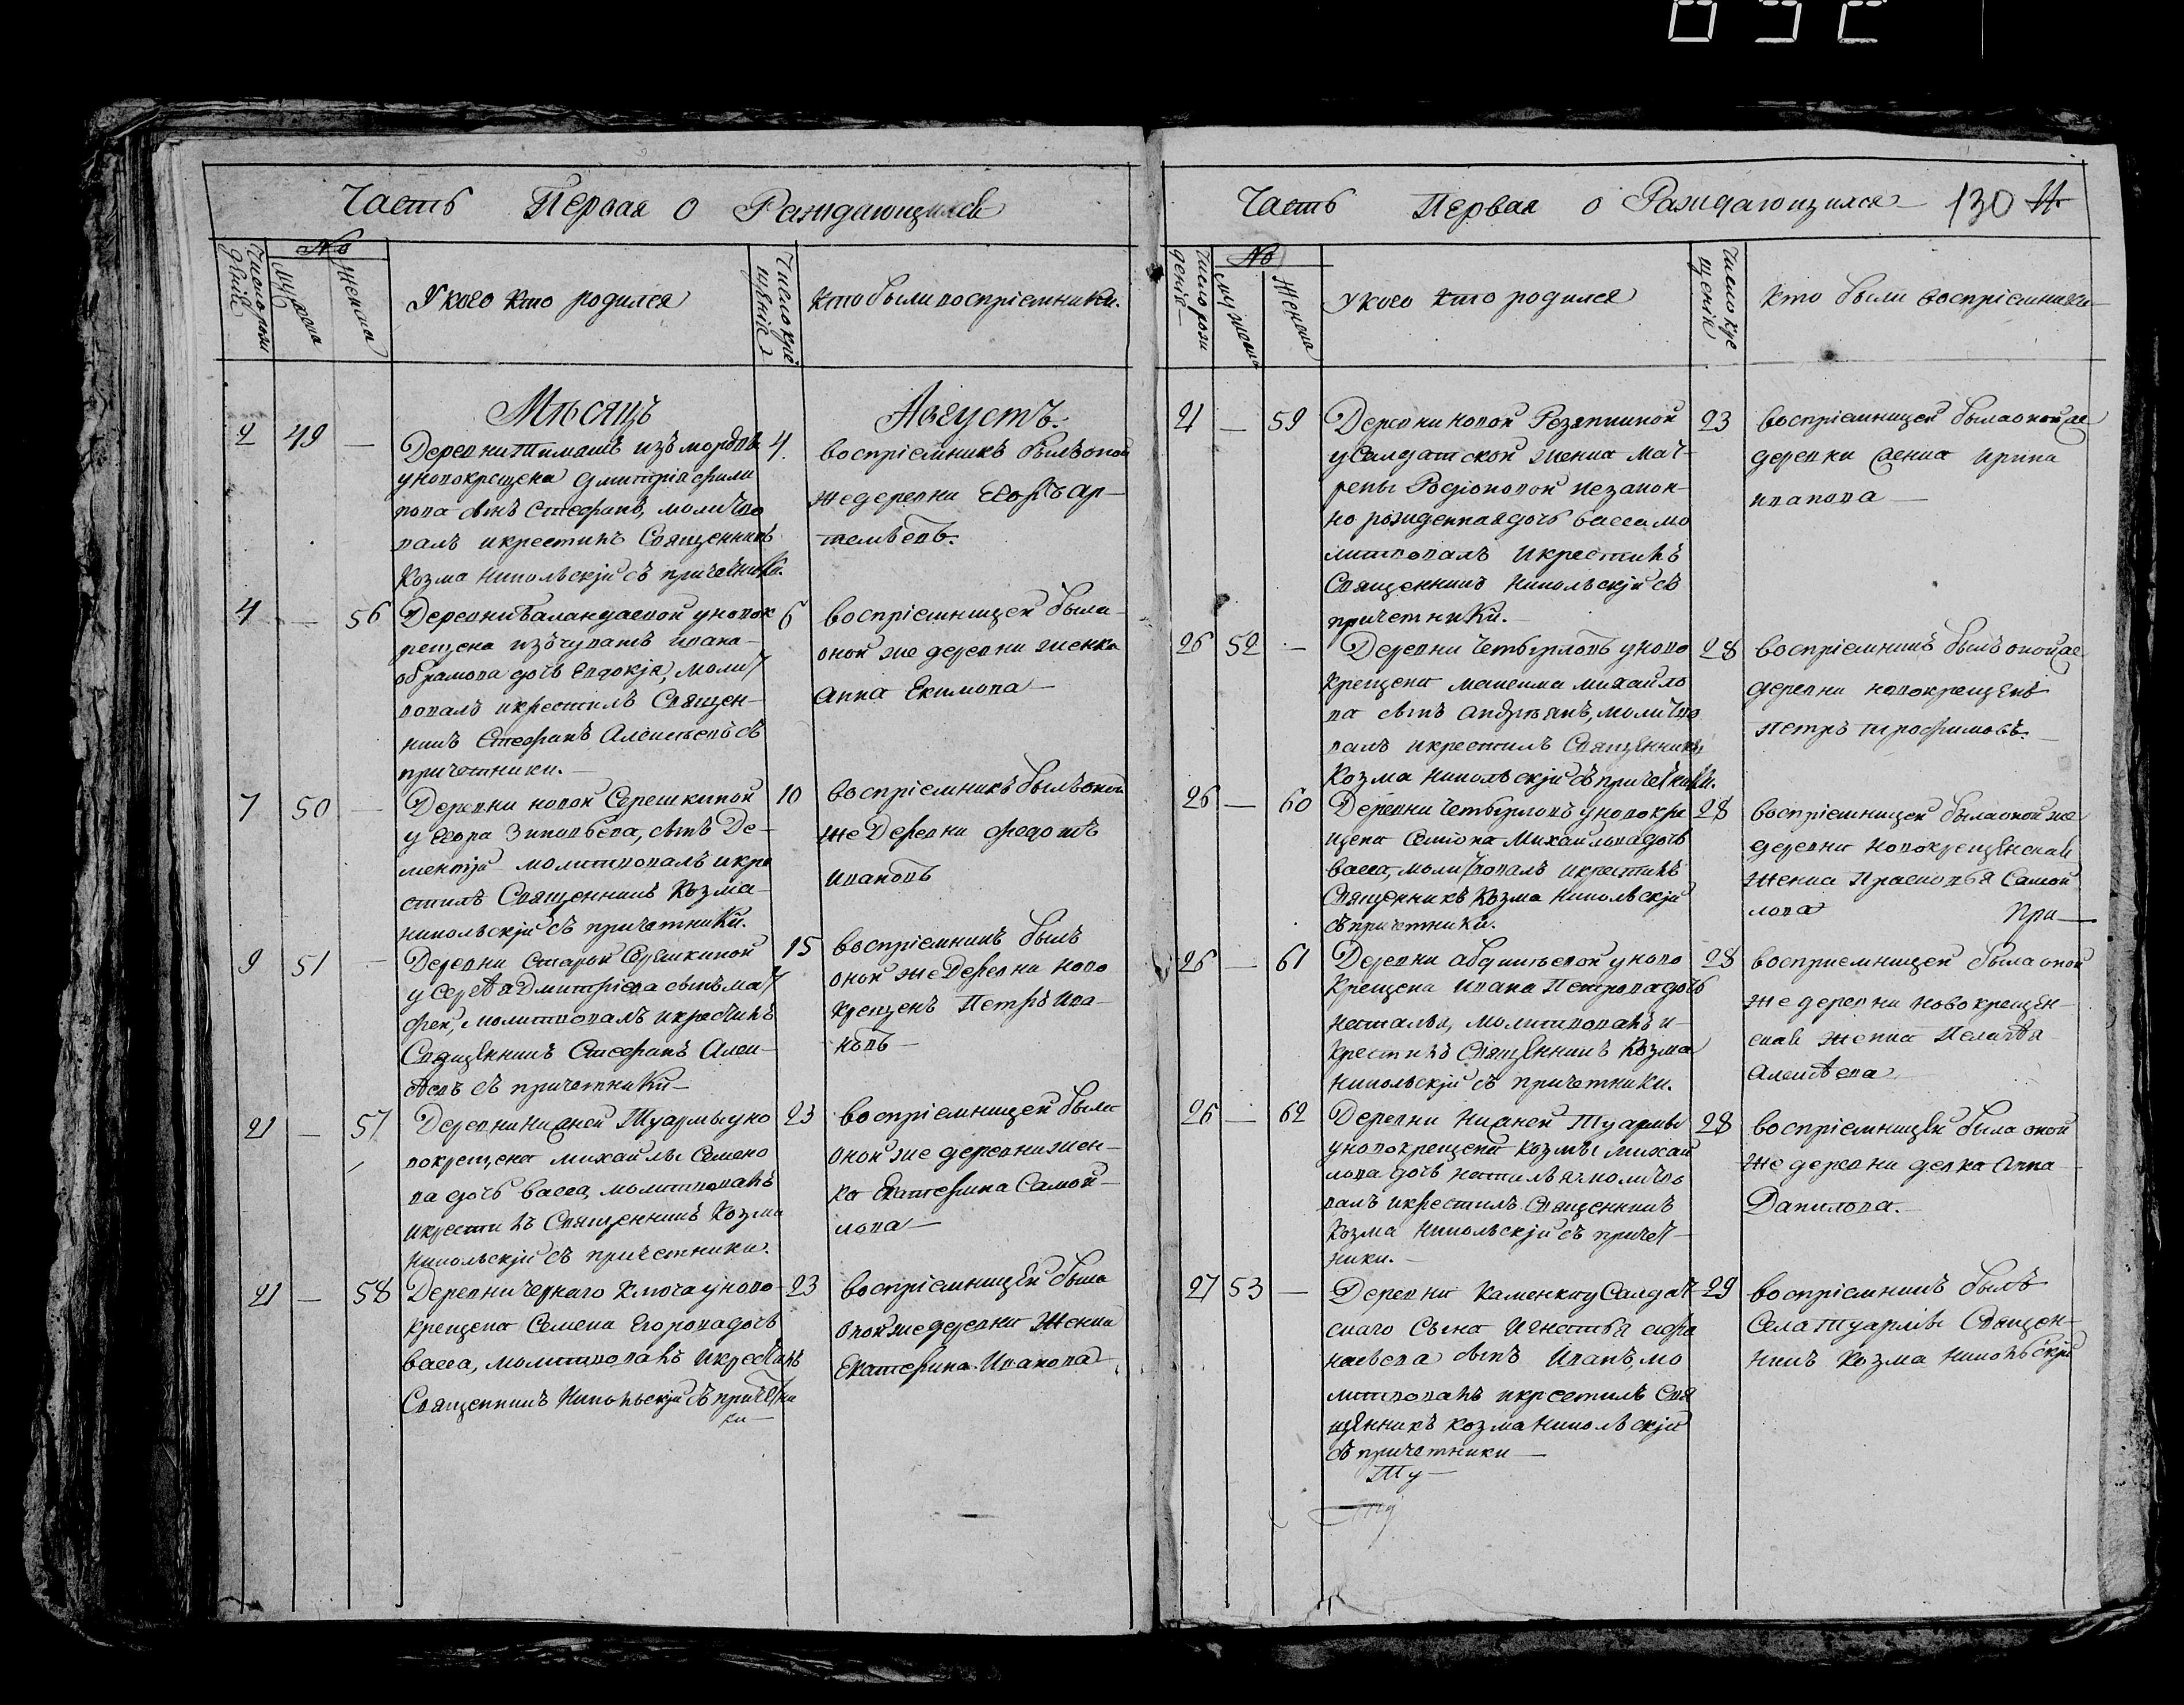 Часть Первая о Раждающихся
Число рождения
№
Мужска
Женска
У кого кто родился
Число крещения
Кто были воспріемники.
Мѣсяцъ
Августъ.
2 49 — Деревни Тимяшъ изъ мордвы 4
у новокрещена Дмитрія Фили
пова сынъ Стефанъ, молитво
валъ и крестилъ Священникъ
Козма Никольскій съ причетники.
воспріемникъ былъ оной
же деревни Егоръ Ар-
темьевъ.
4 — 56 Деревни Баландаевой у новок 6
рещена изъ чувашъ Ивана
Абрамова дочь Евдокія, молит
вовалъ и крестилъ Священ-
никъ Стефанъ Алексѣевъ съ
причетники.—
воспріемницей была
оной же деревни женка
Анна Екимова—
7 50 — Деревни новой Серешкиной 10
у Егора Зиновьева, сынъ Де-
ментій молитвовалъ и кре
стилъ Священникъ Козма
Никольскій съ причетники.
воспріемникъ былъ оной
же Деревни Федотъ
Ивановъ
9 51 — Деревни Старой Серешкиной 15
у Сергѣя Дмитріева сынъ Мат
фей, молитвовалъ и крестилъ
Священникъ Стефанъ Алек-
сѣевъ съ причетники—
воспріемникъ былъ
оной же Деревни ново
крещенъ Петръ Ива-
новъ—
21 — 57 Деревни Нижней Туармы у но 23
вокрещена Михайлы Семено
ва дочь Васса, молитвовалъ
и крестилъ Священникъ Козма
Никольскій съ причетники.
воспріемницей была
оной же деревни жен-
ка Екатерина Самой-
лова—
21 — 58 Деревни Чернаго Ключа у ново- 23
крещена Семена Егорова дочь
Васса, молитвовалъ и крестилъ
Священникъ Никольскій съ причетни
ки—
воспріемницей была
оной же деревни женка
Екатерина Иванова
Часть Первая о Раждающихся 130
Число рождения
№
Мужска
Женска
У кого кто родился
Число крещенія
Кто были воспріемники
21 — 59 Деревни новой Резяпкиной 23
у Салдатской женки Мат-
рены Родіоновой незакон-
но рожденная дочь Васса мо
литвовалъ и крестилъ
Священникъ Никольскій съ
причетники.—
воспріемницей была оной же
деревни женка Ирина
Иванова—
26 52 — Деревни Четырловъ у ново 28
крещена Максима Михайло
ва сынъ Андреянъ, молитво
валъ и крестилъ Священникъ
Козма Никольскій съ причетники.
воспріемникъ былъ оной же
деревни новокрещенъ
Петръ Трофимовъ.
26 — 60 Деревни Четырловъ у новокре 28
щена Семіона Михайлова дочь
Васса, молитвовалъ и крестилъ
Священникъ Козма Никольскій
съ причетники.
воспріемницей была оной же
деревни новокрещенская
женка Прасковья Самой
лова При—
26 — 61 Деревни Абдикѣевой у ново 28
крещена Ивана Петрова дочь
Наталья, молитвовалъ и
крестилъ Священникъ Козма
Никольскій съ причетники.
восприемницей была оной
же деревни новокрещен-
ская женка Пелагѣя
Алексѣева
26 — 62 Деревни Нижней Туармы 28
у новокрещена Козмы Михай
лова дочь Наталья молитво
валъ и крестилъ Священникъ
Козма Никольскій съ причет-
ники.—
воспріемницей была оной
же деревни девка Анна
Данилова.—
27 53 — Деревни Каменки у Салдат- 29
скаго сына Игнатья Афа
насьева сынъ Иванъ, мо
литвовалъ и крестилъ Свя
щенникъ Козма Никольскій
съ причетники—
Ту—
воспріемникъ былъ
Села Туармы Священ-
никъ Козма Никольскій